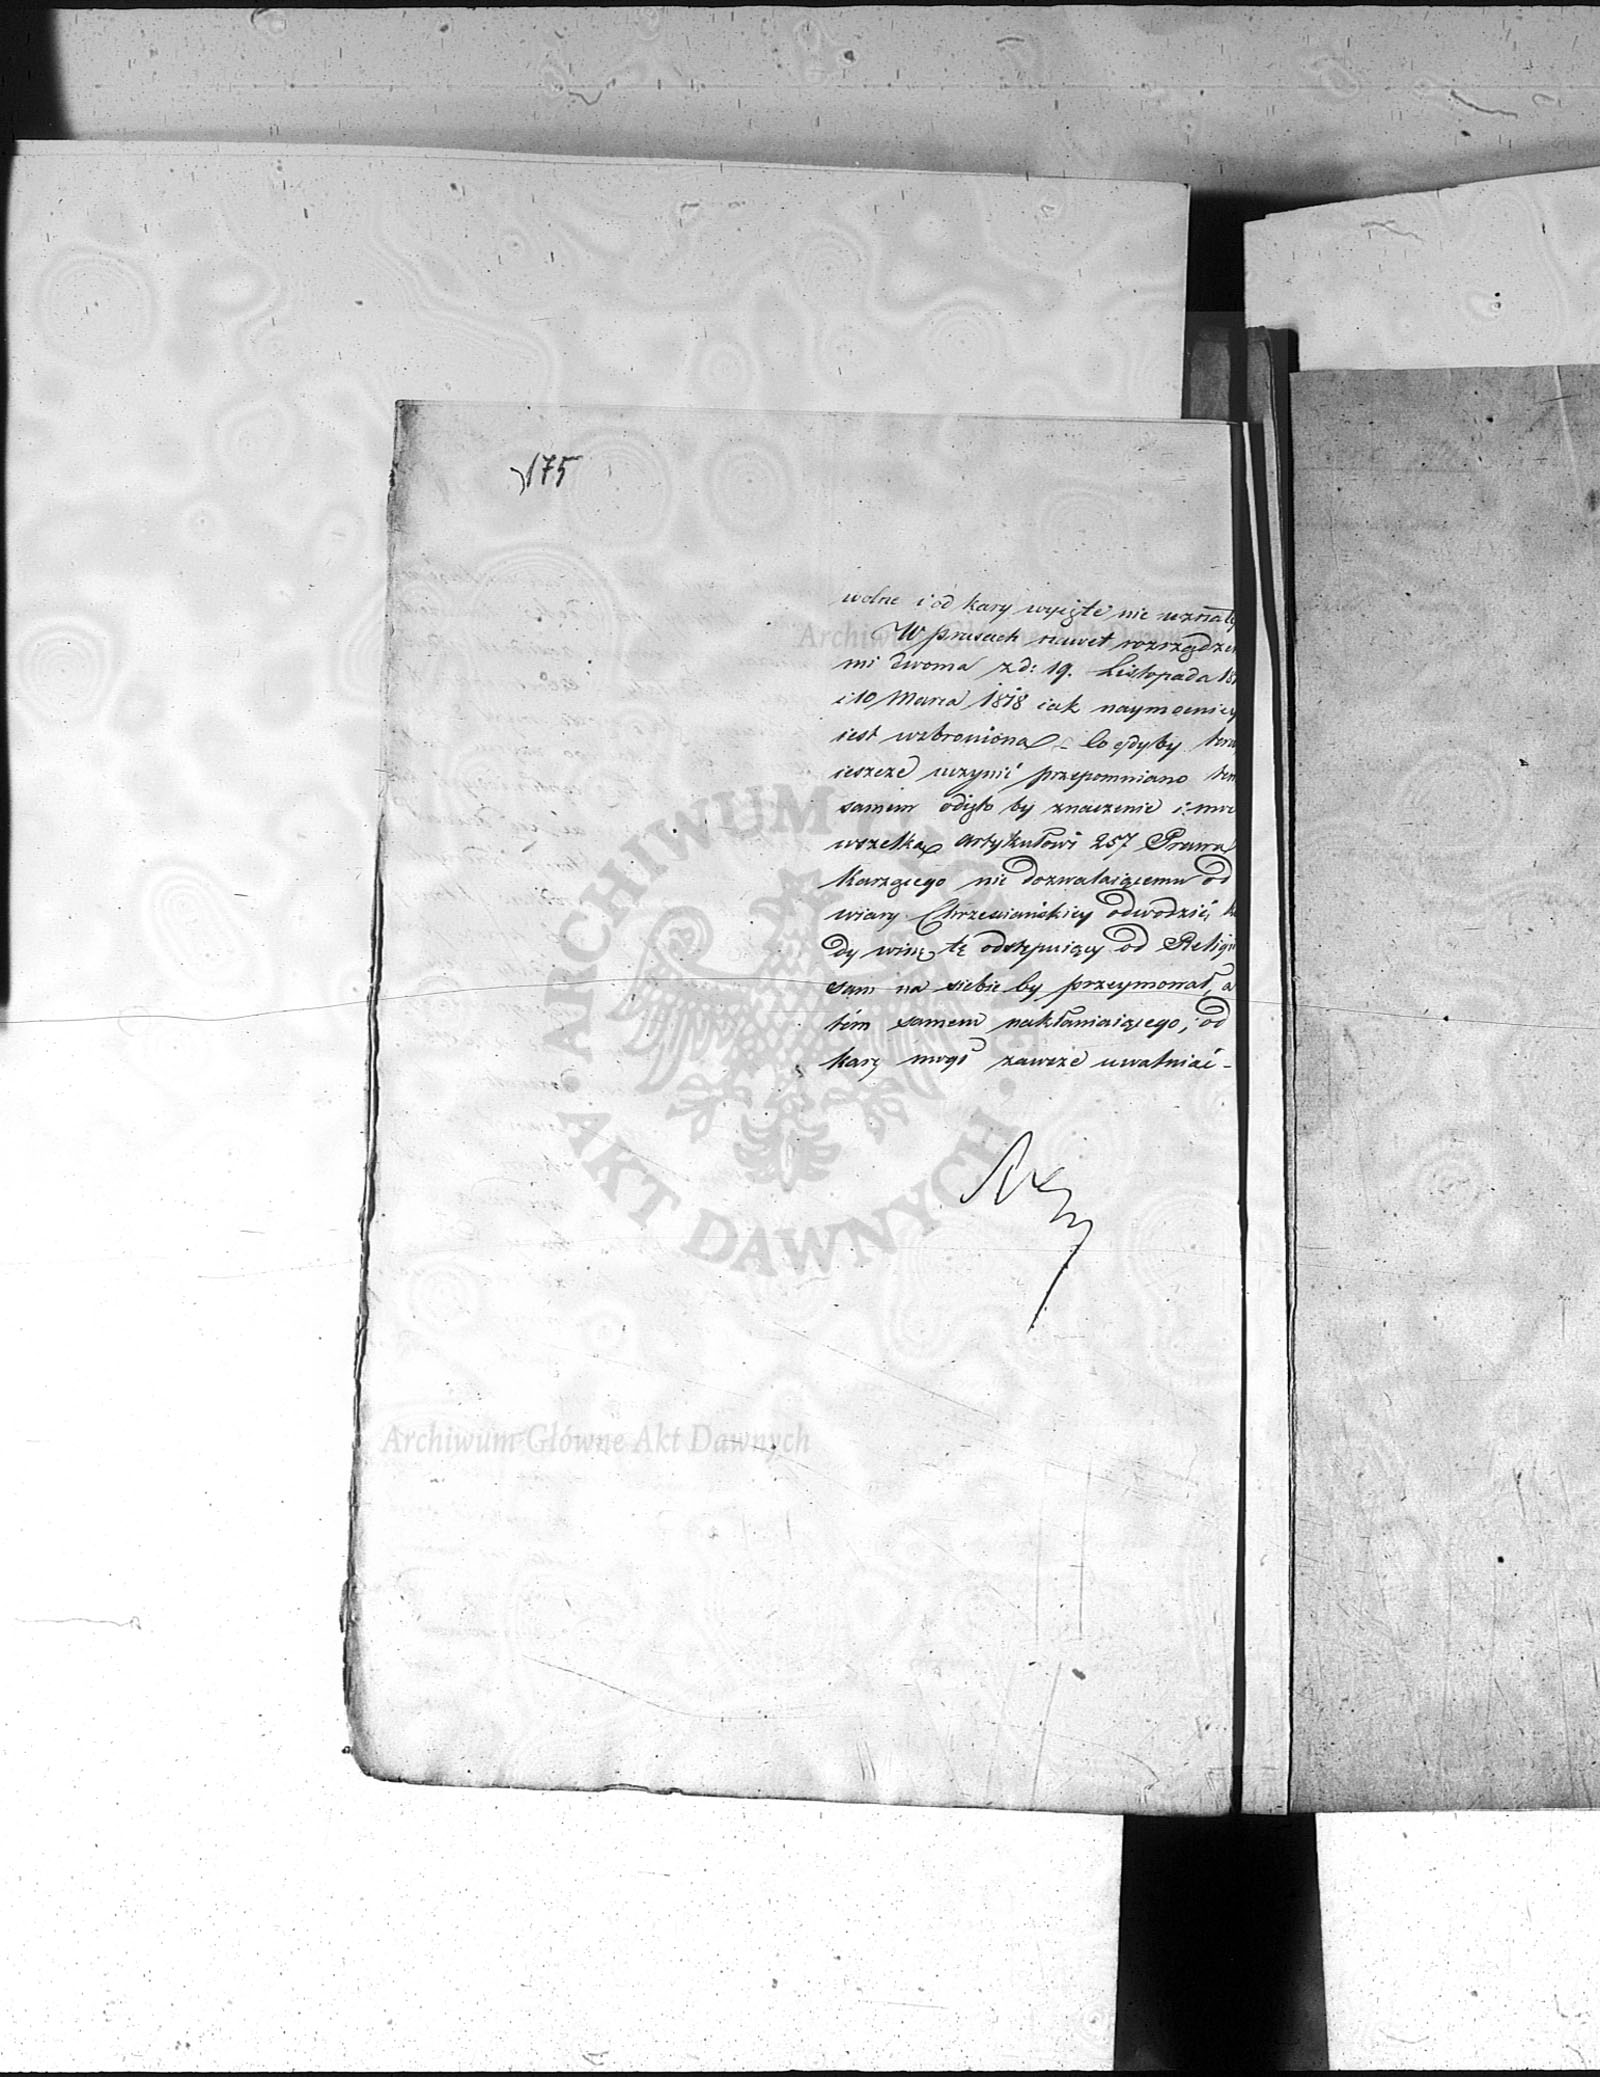 175
wolne i od kary wyięte nie uznały
W prusach nawet rozrządze
mi dwoma z d: 19. Listopada 18
i 10 Marca 1818 iak naymocniey
iest wzbroniona – Co gdyby
ieszcze uczynić przepomniano tem
samem odięto by znaczenie i moc
wszelką Artykułowi 257 Prawa
Karzącego nie dozwalaiącemu od
wiary Chrzesciańskiey odwodzić,
dy winę tę odstępuiący od Religii
sam na siebie by przeymował, a
tém samem nakłaniaiącego, od
kary mógł zawsze uwalniać –
Archiwum Główne Akt Dawnych
ARCHIWUM
AKT DAWNYCH
Archiwum Główne Akt Dawnych